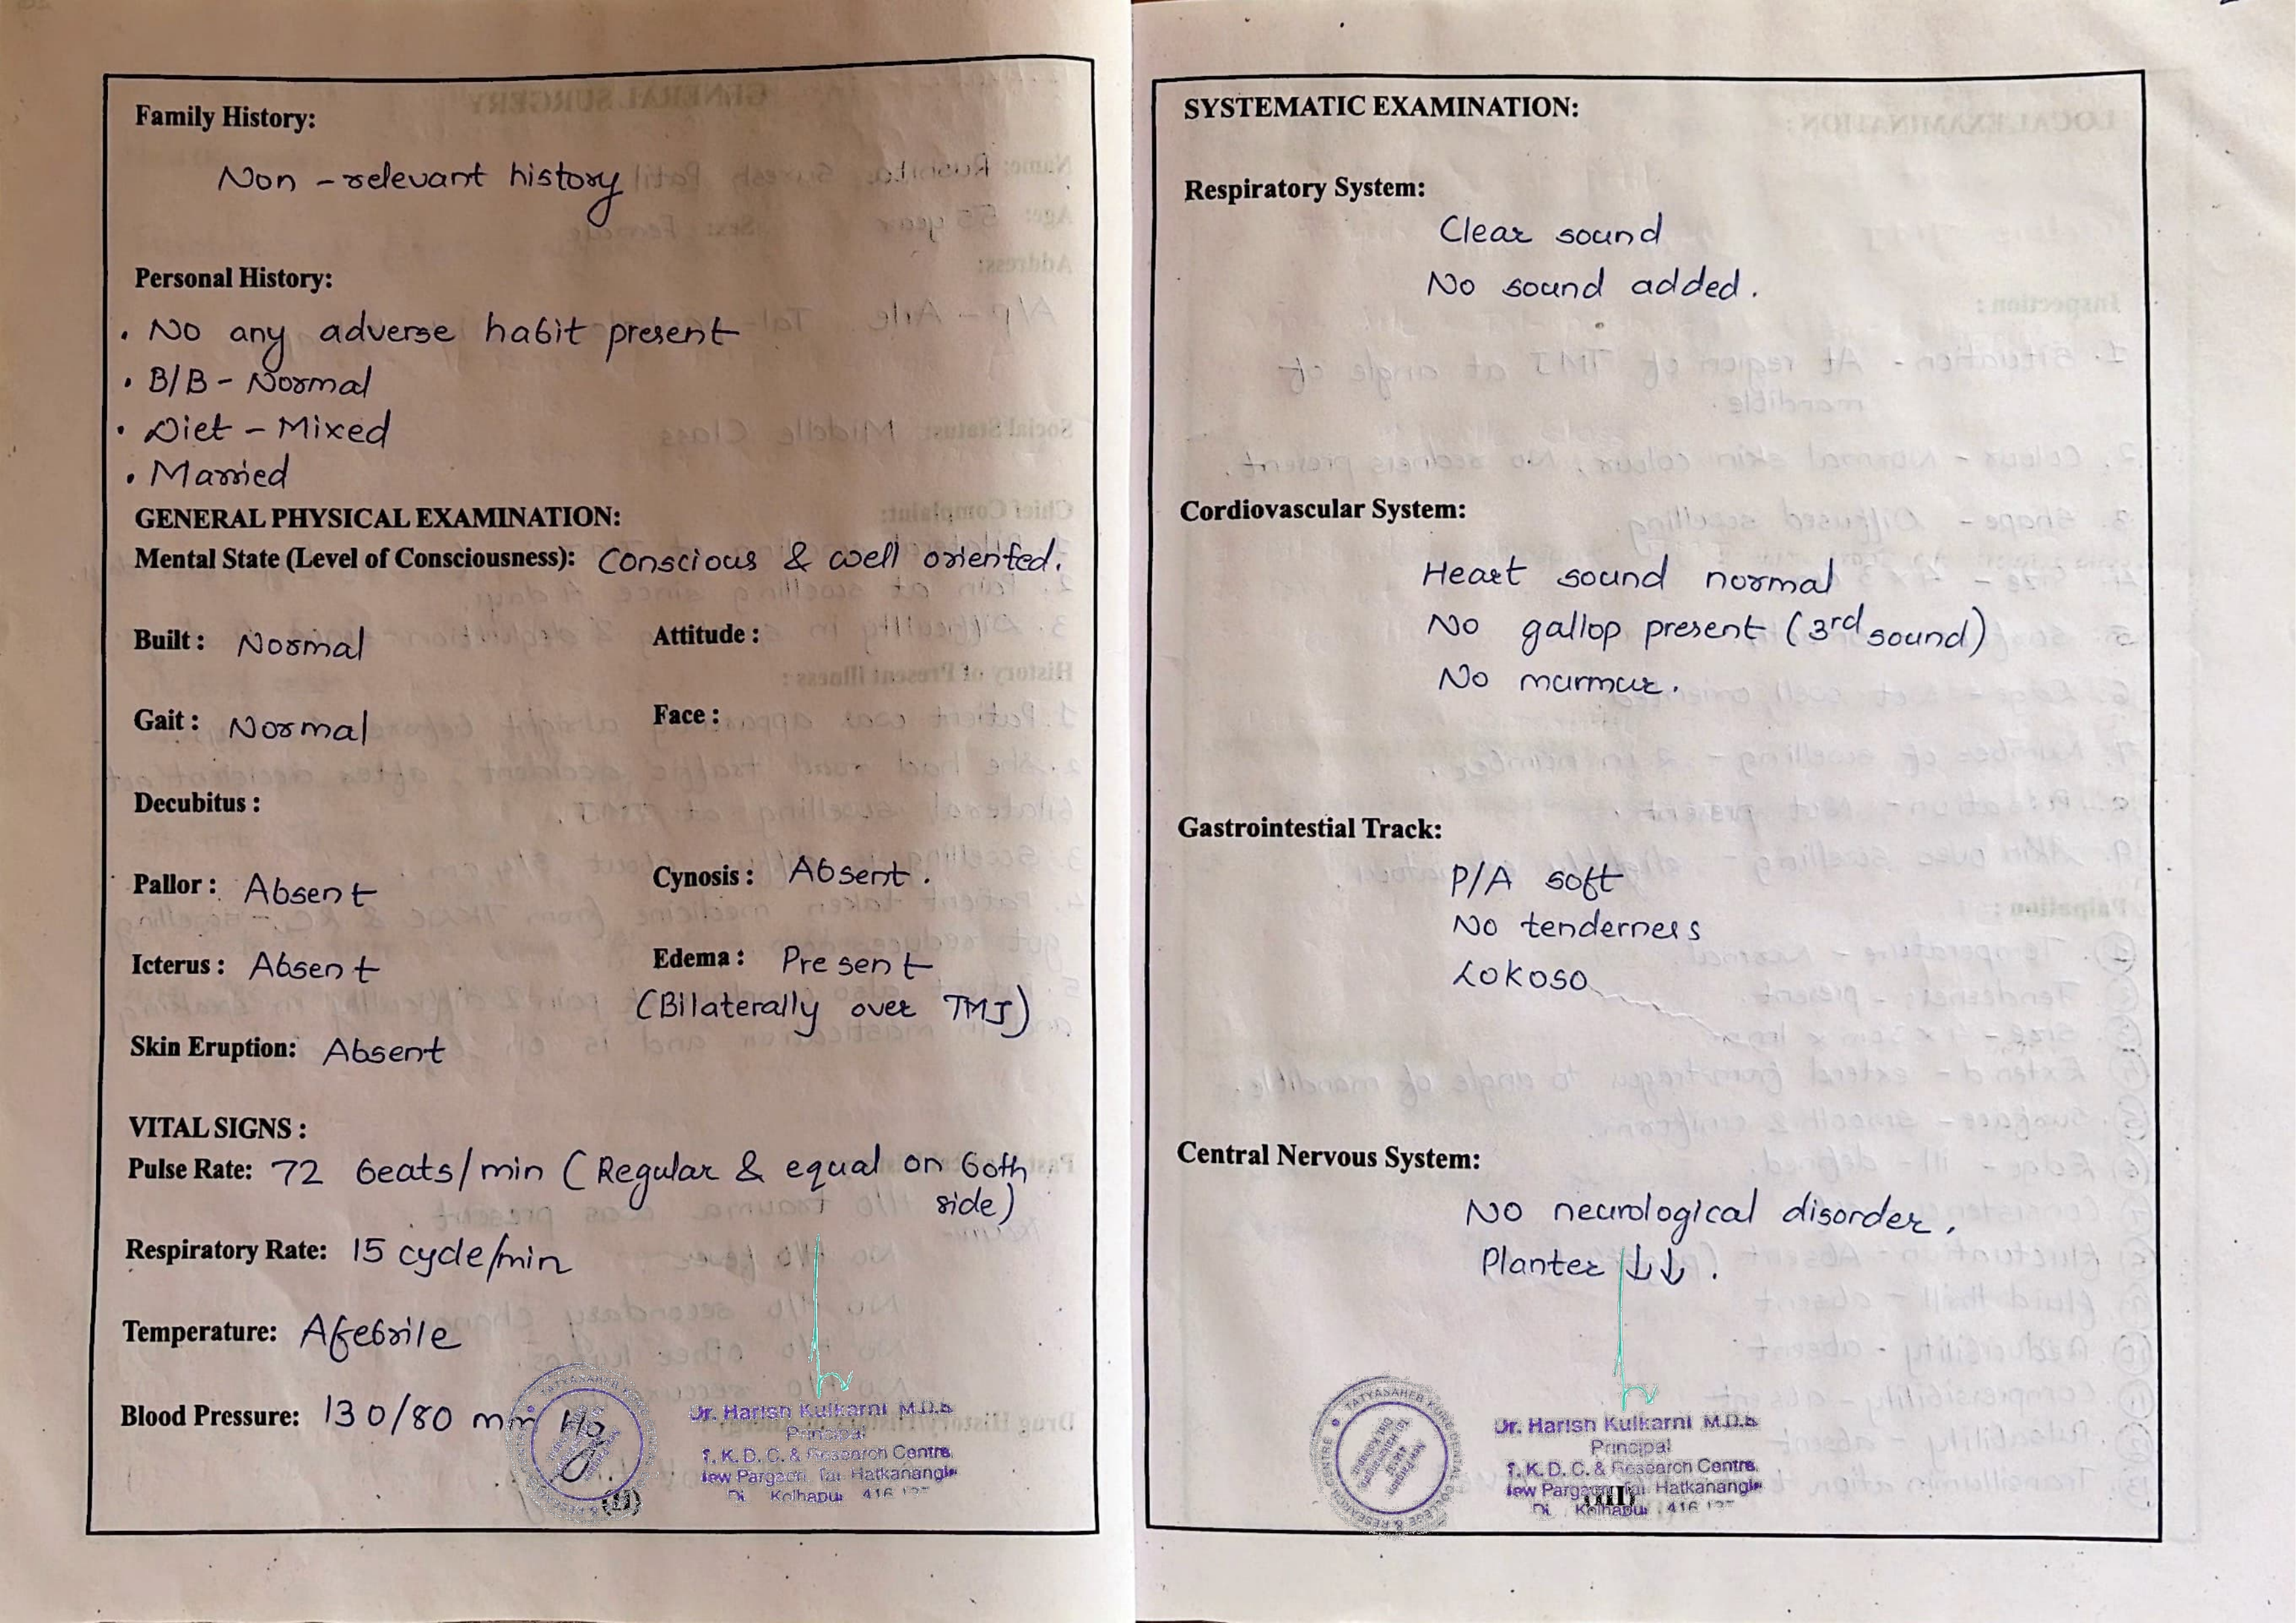 Family History:
Non - relevant history
Personal History:
• No any adverse habit present
• B/B - Normal
• Diet - Mixed
• Married
GENERAL PHYSICAL EXAMINATION:
Mental State (Level of Consciousness): Conscious & well oriented.
Built : Normal Attitude :
Gait : Normal Face :
Decubitus :
Pallor : Absent Cynosis : Absent.
Icterus : Absent Edema : Present
(Bilaterally over TMJ)
Skin Eruption: Absent
VITAL SIGNS :
Pulse Rate: 72 beats/min (Regular & equal on both
side)
Respiratory Rate: 15 cycle/min
Temperature: Afebrile
Blood Pressure: 130/80 mm Hg
Dr. Harish Kulkarni M.D.S
Principal
T. K. D. C. & Research Centre,
New Pargaon, Tal Hatkanangle
Di Kolhapur 416
(II)
SYSTEMATIC EXAMINATION:
Respiratory System:
Clear sound
No sound added.
Cordiovascular System:
Heart sound normal
No gallop present (3rd sound)
No murmur.
Gastrointestial Track:
P/A soft
No tenderness
LOKOSO
Central Nervous System:
No neurological disorder.
Planter ↓↓.
TATYASAHEB KORE DENTAL COLLEGE & RESEARCH CENTRE
Dr. Harish Kulkarni M.D.S
Principal
T. K. D. C. & Research Centre,
New Pargaon, Tal Hatkanangle
Di Kolhapur 416
(III)